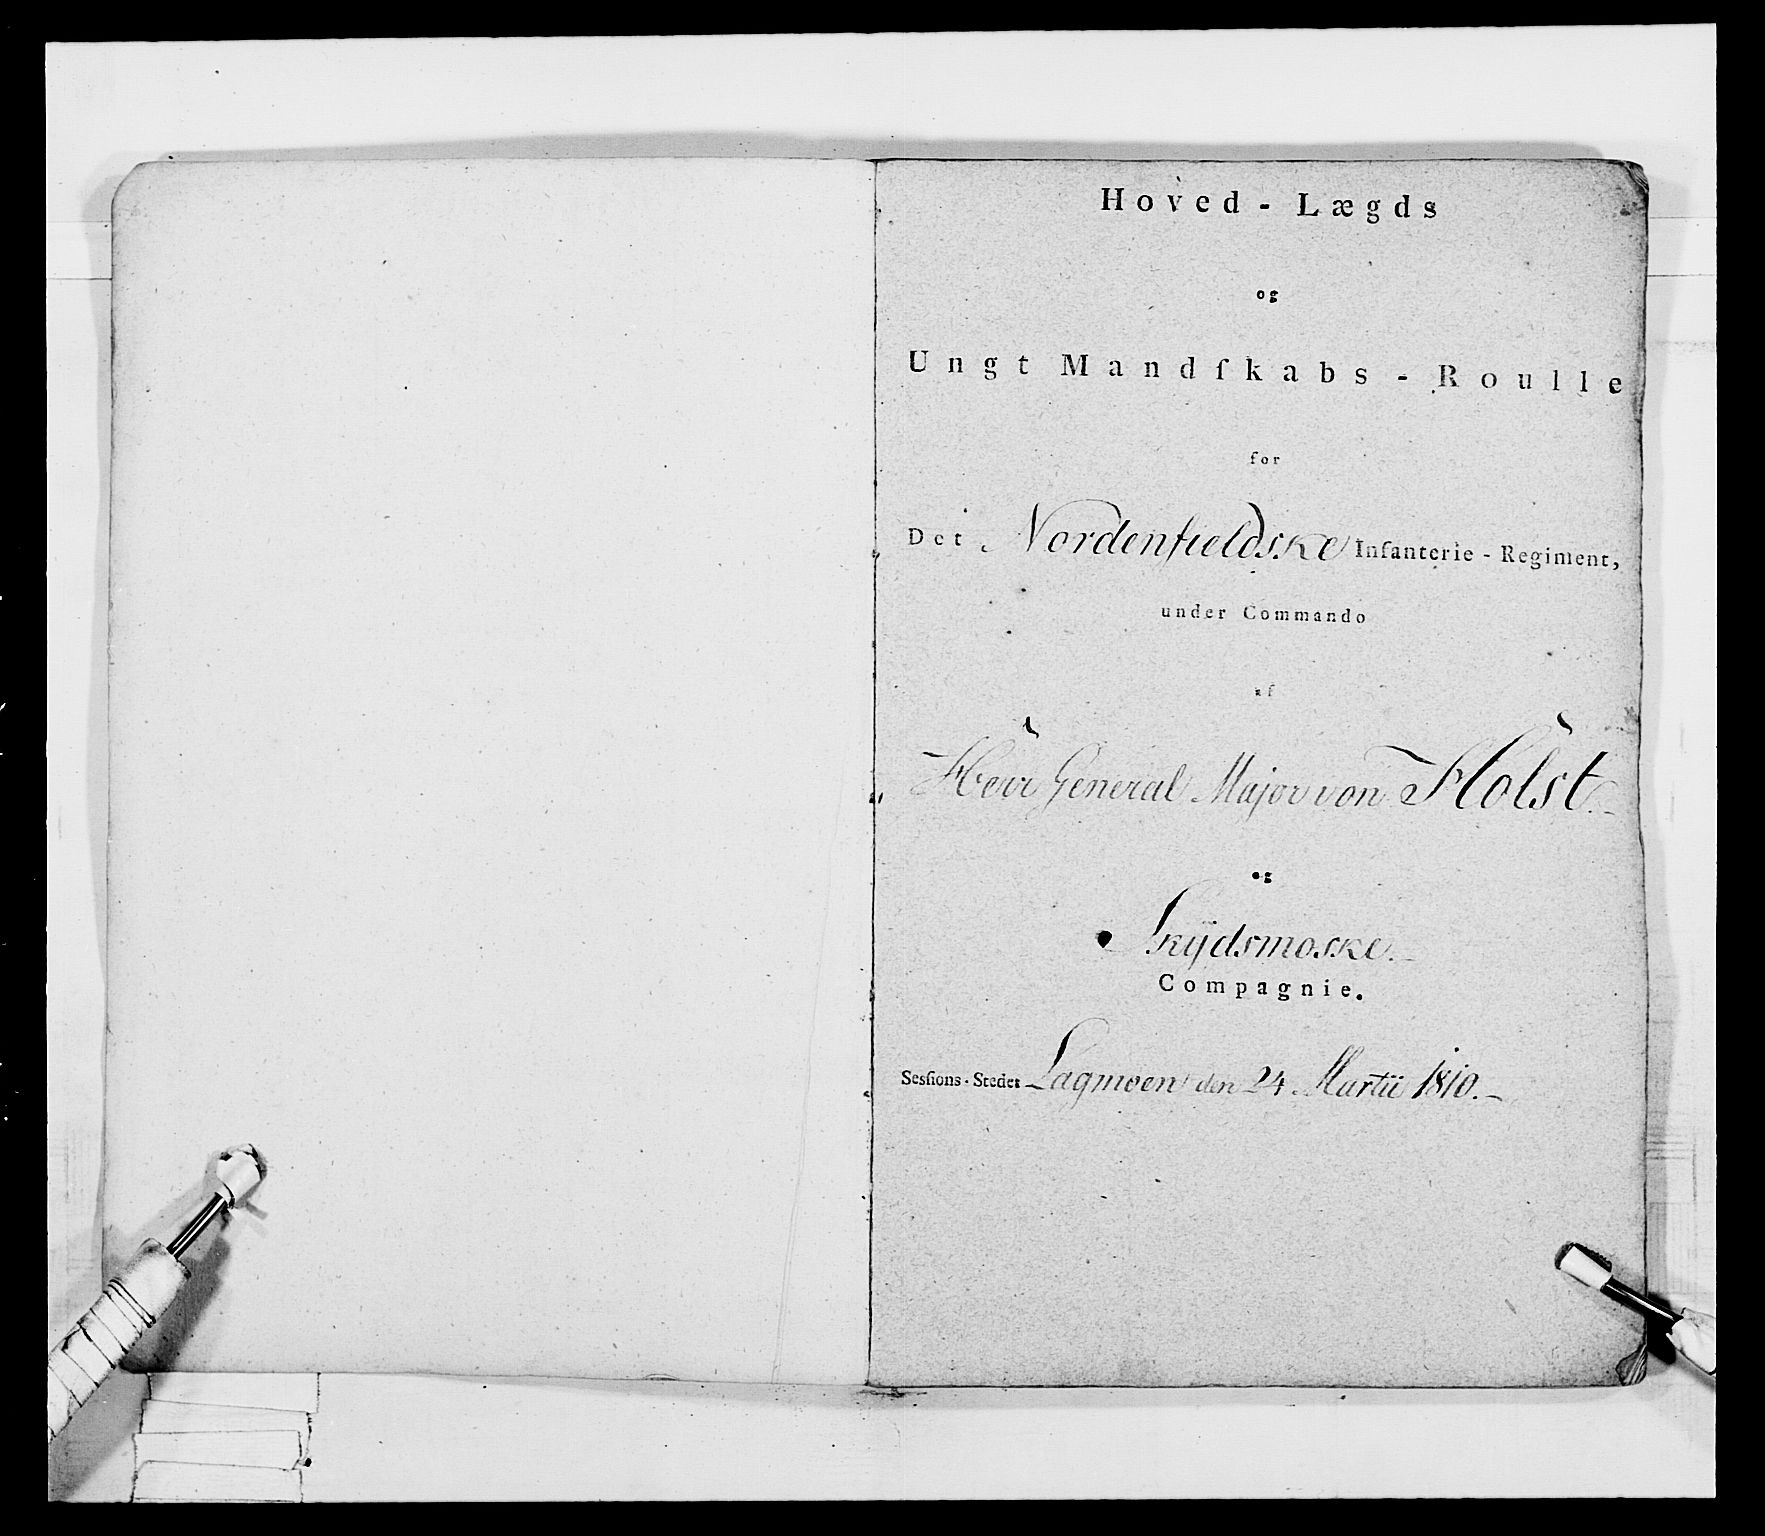 Hoved - Lægds
og
Ungt Mandſkabs - Roulle
for
Det Nordenfieldske Infanterie - Regiment,
under Commando
af
Herr General Major von Holst.
og
Skÿdsmoske.
Compagnie.
Sesſions-Stedet Lagmoen den 24 Martii 1810.